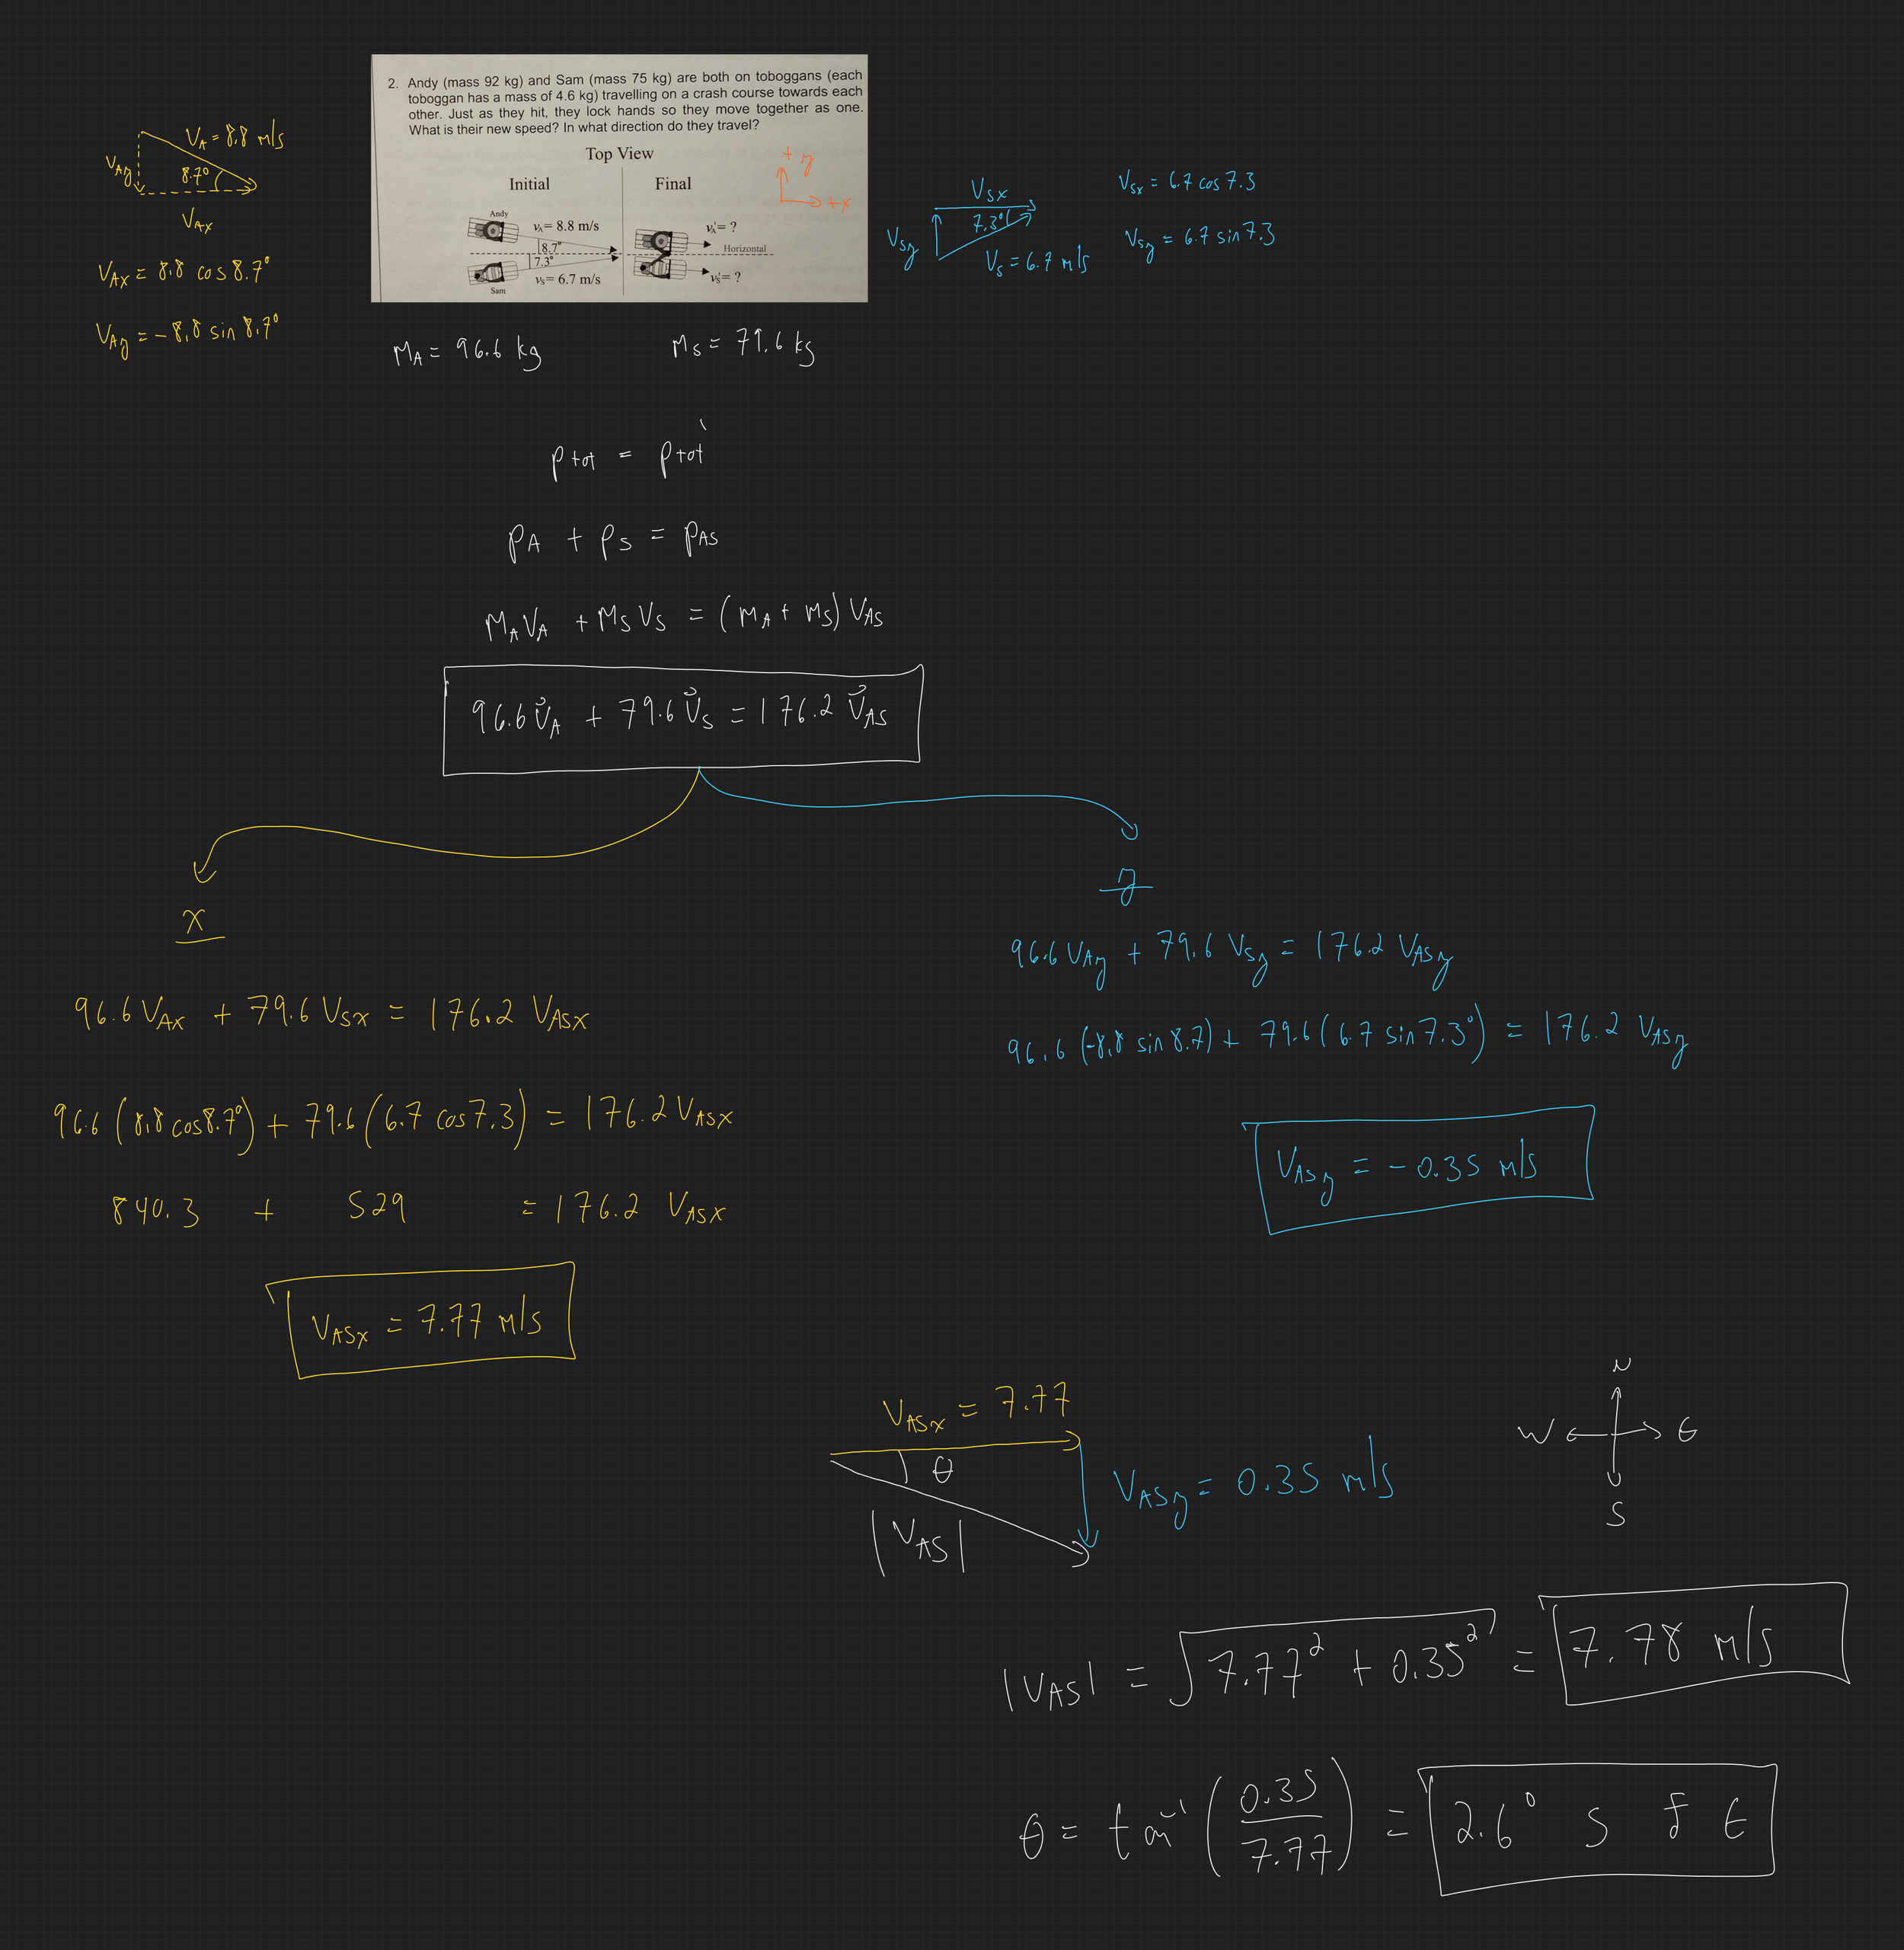 2. Andy (mass 92 kg) and Sam (mass 75 kg) are both on toboggans (each
toboggan has a mass of 4.6 kg) travelling on a crash course towards each
other. Just as they hit, they lock hands so they move together as one.
What is their new speed? In what direction do they travel?
Top View
Initial
Final
Andy
vA= 8.8 m/s
8.7°
7.3°
vS= 6.7 m/s
Sam
vA'= ?
Horizontal
vS'= ?
+y
+x
VA = 8.8 m/s
VAy
8.7°
VAx
VAx = 8.8 cos 8.7°
VAy = -8.8 sin 8.7°
VSx
7.3°
VSy
VS = 6.7 m/s
VSx = 6.7 cos 7.3
VSy = 6.7 sin 7.3
MA = 96.6 kg
MS = 79.6 kg
Ptot = Ptot'
PA + PS = PAS
MAVA + MSVS = (MA + MS) VAS
96.6 VA + 79.6 VS = 176.2 VAS
x
96.6 VAx + 79.6 VSx = 176.2 VASx
96.6 (8.8 cos 8.7°) + 79.6 (6.7 cos 7.3) = 176.2 VASx
840.3 + 529 = 176.2 VASx
VASx = 7.77 m/s
y
96.6 VAy + 79.6 VSy = 176.2 VASy
96.6 (-8.8 sin 8.7) + 79.6 (6.7 sin 7.3°) = 176.2 VASy
VASy = -0.35 m/s
VASx = 7.77
θ
VASy = 0.35 m/s
|VAS|
N
W E
S
|VAS| = √7.77² + 0.35² = 7.78 m/s
θ = tan⁻¹ (0.35/7.77) = 2.6° S of E